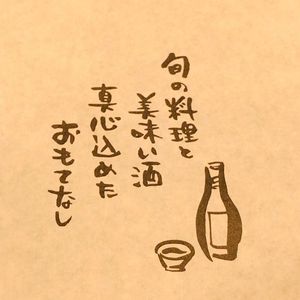 旬の料理と
美味い酒
真心込めた
おもてなし